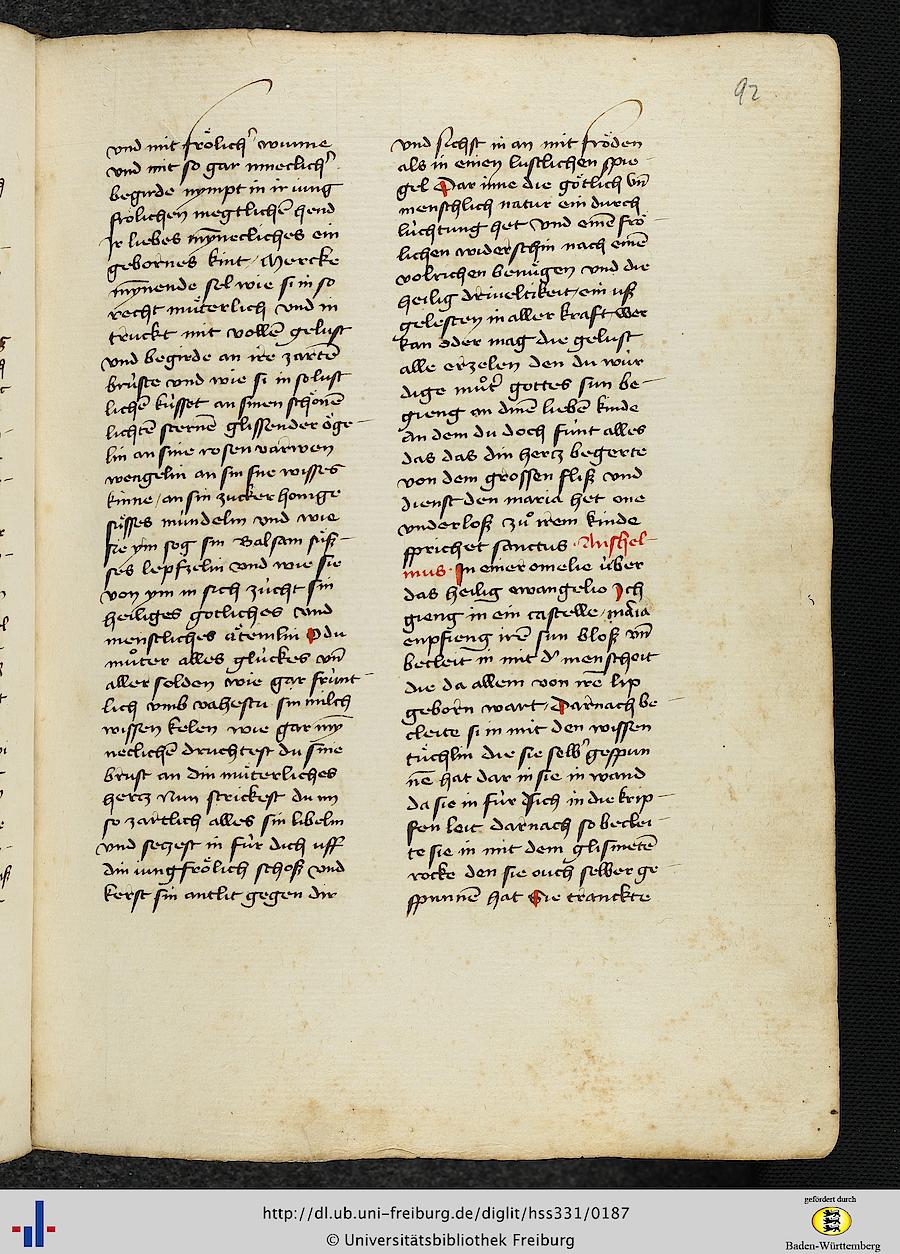 92
vnd mit frölichͬ wunne
vnd mit so gar inneclichͬ
begirde nympt in ir iung
frölichen megtlichē hend
Ir liebes my̅necliches ein
gebornes kint / Mercke
my̅nende sel wie si in so
recht mu̍terlich vnd in
truckt mit vollē gelust
vnd begirde an ire zartē
bru̍ste vnd wie si in so lust
lichē ku̍sset an sinen schönē
lichtē sternē glissender öge-
lin an sine rosen varwen
wengelin an sin sne wisses
kinne / an sin zucker honige
su̍sses mu̍ndelin vnd wie
sie ym sog sin Balsam su̍ß-
ses lepfzelin vnd wie sie
von ym in sich zu̍cht sin
heiliges gotliches vnd
menschliches ätemlin O du
muͦter alles glu̍ckes vn̄
aller selden wie gar fru̍nt-
lich vmb vahestu sin milch
wissen kelen wie gar my̅
neclichē druchtest du sine
brust an din mu̍terliches
hercz Nun strickest du im
so zartlich alles sin libelin
vnd seczest in fu̍r dich vff
din iungfrölich schoß vnd
kerst sin antlit gegen dir
vnd sichst in an mit fröden
als in einen lustlichen spie-
gel Dar inne die götlich vn̄
menschlich natur ein durch
lu̍chtung het vnd einē frö-
lichen widerschin nach einē
volrichen benu̍gen vnd die
heilig driueltikeit / ein vß
gelesten in aller kraft wer
kan oder mag die gelust
alle erzelen den du wir
dige muͦtͬ gottes sun be-
gieng an dinē liebē kinde
An dem du doch funt alles
das das din hercz begerte
von dem grossen fliß vnd
dienst den maria het one
vnderloß zuͦ irem kinde
sprichet sanctus · Anshel-
mus · In einer omelie u̍ber
das heilig ewangelio Ich
gieng in ein castelle / maria
enpfieng irē sun bloß vn̄
becleit in mit dͬ menscheit
die da allein von ire lip
geborn wart / Darnach be-
cleite si in mit den wissen
tu̍chlin die sie selbͬ gespun
nē hat dar in sie in wand
da sie in fu̍r sich in die krip-
fen leit darnach so beclei-
te sie in mit dem glismetē
rocke den sie ouch selber ge-
spunnē hat Sie tranckte
http://dl.ub.uni-freiburg.de/diglit/hss331/0187
© Universitätsbibliothek Freiburg
gefördert durch
Baden-Württemberg